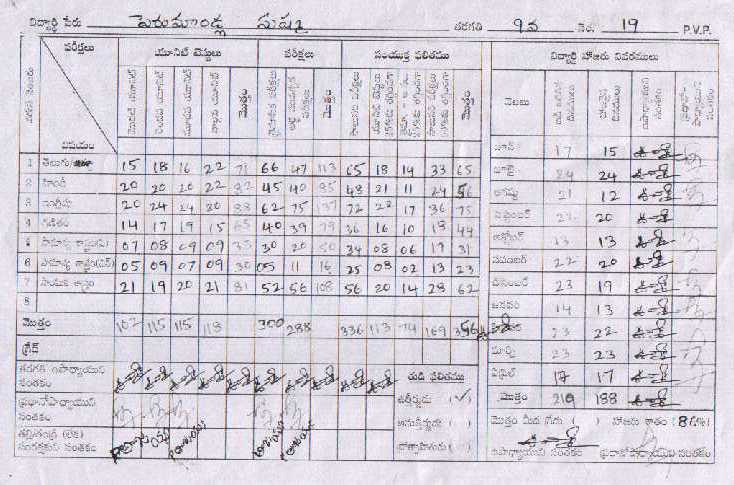 విద్యార్థి పేరు పెరుమాండ్ల సుష్మ తరగతి 9వ నెం. 19 P.V.P.
వరుస నెంబరు పరీక్షలు యూనిట్ టెస్టులు పరీక్షలు సంయుక్త ఫలితము
విషయం మొదటి యూనిట్ రెండవ యూనిట్ మూడవ యూనిట్ నాలవ యూనిట్ మొత్తం మొత్తం మొత్తం
1 తెలుగు 15 18 16 22 71 66 47 113 65 18 14 33 65
2 హిందీ 20 20 20 22 82 45 40 85 48 21 11 24 56
3 ఇంగ్లీషు 20 24 24 20 88 62 75 137 72 22 17 36 75
4 గణితం 14 17 19 15 65 40 39 79 36 16 10 18 44
5 సామాన్య శాస్త్రం 07 08 09 09 33 30 20 50 34 08 06 17 31
6 సామాన్య శాస్త్రం 05 09 07 09 30 05 11 16 25 08 02 13 23
7 సాంఘిక శాస్త్రం 21 19 20 21 81 52 56 108 56 20 14 28 62
8
మొత్తం 102 115 115 118 300 288 336 113 74 169
గ్రేడ్
తరగతి ఉపాధ్యాయుని సంతకం
ప్రధానోపాధ్యాయుని సంతకం
తల్లి/తండ్రి (లేక) సంరక్షకుని సంతకం
తుది ఫలితము
ఉత్తీర్ణుడు (✓)
అనుత్తీర్ణుడు ( )
ప్రోత్సాహితుడు ( )
విద్యార్థి హాజరు వివరములు
నెలలు బడి జరిగిన దినములు హాజరైన దినములు ఉపాధ్యాయుని సంతకం ప్రధానోపాధ్యాయుని సంతకం
జూన్ 17 15
జులై 24 24
ఆగష్టు 21 12
సెప్టెంబర్ 22 20
అక్టోబర్ 13 13
నవంబర్ 22 20
డిసెంబర్ 23 19
జనవరి 14 13
23 22
మార్చి 23 23
ఏప్రిల్ 17 17
మొత్తం 219 188
మొత్తం మీద గ్రేడు ( ) హాజరు శాతం
ఉపాధ్యాయుని సంతకం ప్రధానోపాధ్యాయుని సంతకం